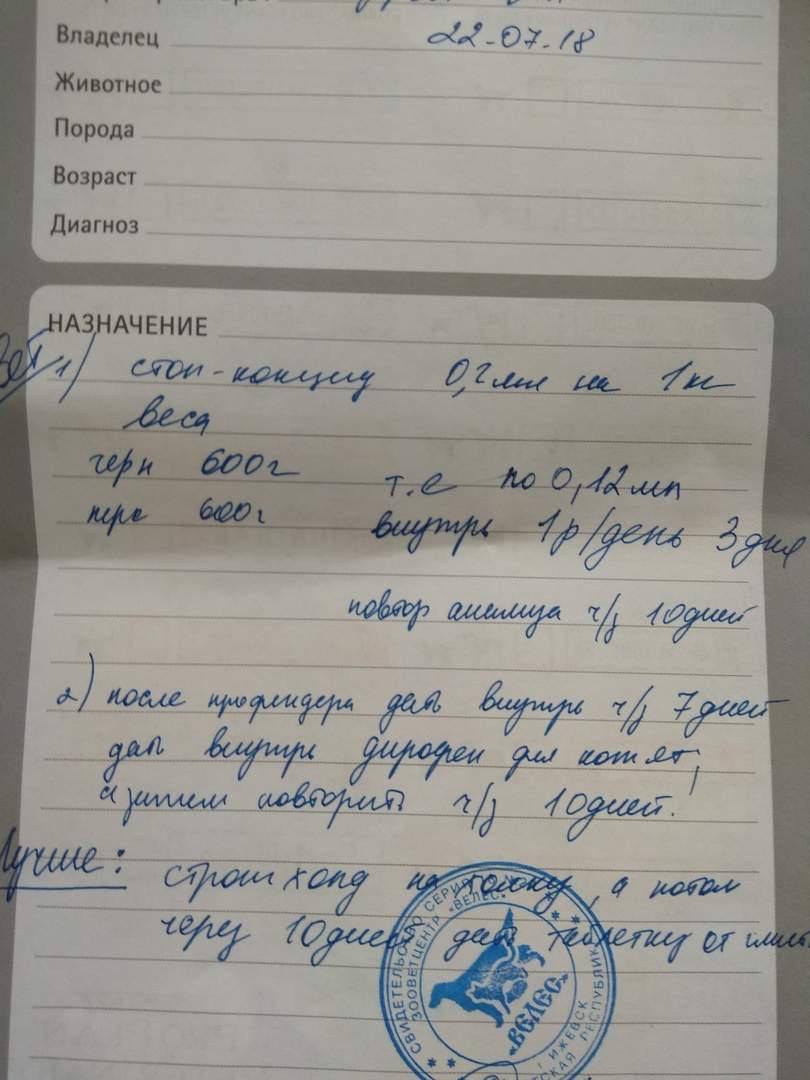 Владелец 22-07-18
Животное
Порода
Возраст
Диагноз
НАЗНАЧЕНИЕ
1) стоп-кокцид 0,2мл на 1кг
веса
черн 600г т.е по 0,12мл
перс 600г внутрь 1р/день 3 дня
повтор анализа ч/з 10дней
2) после профендера дать внутрь ч/з 7 дней
дать внутрь дирофен для котят,
а затем повторить ч/з 10дней!
Лучше: стронгхолд на холку, а потом
через 10дней дать таблетку от глист
СВИДЕТЕЛЬСТВО СЕРИЯ
ЗООВЕТЦЕНТР «ВЕЛЕС»
«ВЕЛЕС»
Г ИЖЕВСК